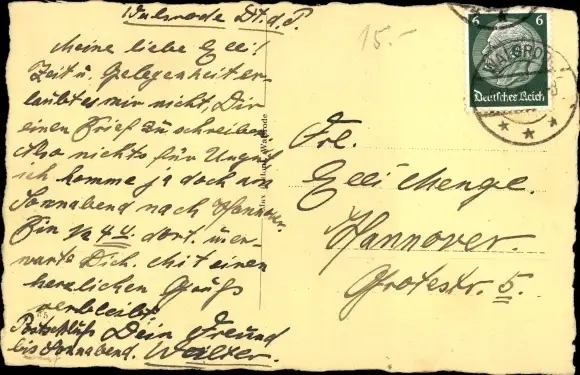 Walsrode D. d. P.
Meine liebe Elli!
Zeit u. Gelegenheit er-
laubt es mir nicht, Dir
einen Brief zu schreiben
Also nichts für Ungut
ich komme ja doch am
Sonnabend nach Hannover.
Bin 1/2 4 U. dort. u. er-
warte Dich. Mit einen
herzlichen Gruß
verbleibt
Dein Freund
Walter.
Postschluß
bis Sonnabend.
15.-
6 6
Deutsches Reich
WALSRODE
Walsrode
Frl.
Elli Menge.
Hannover.
Grotestr. 5.